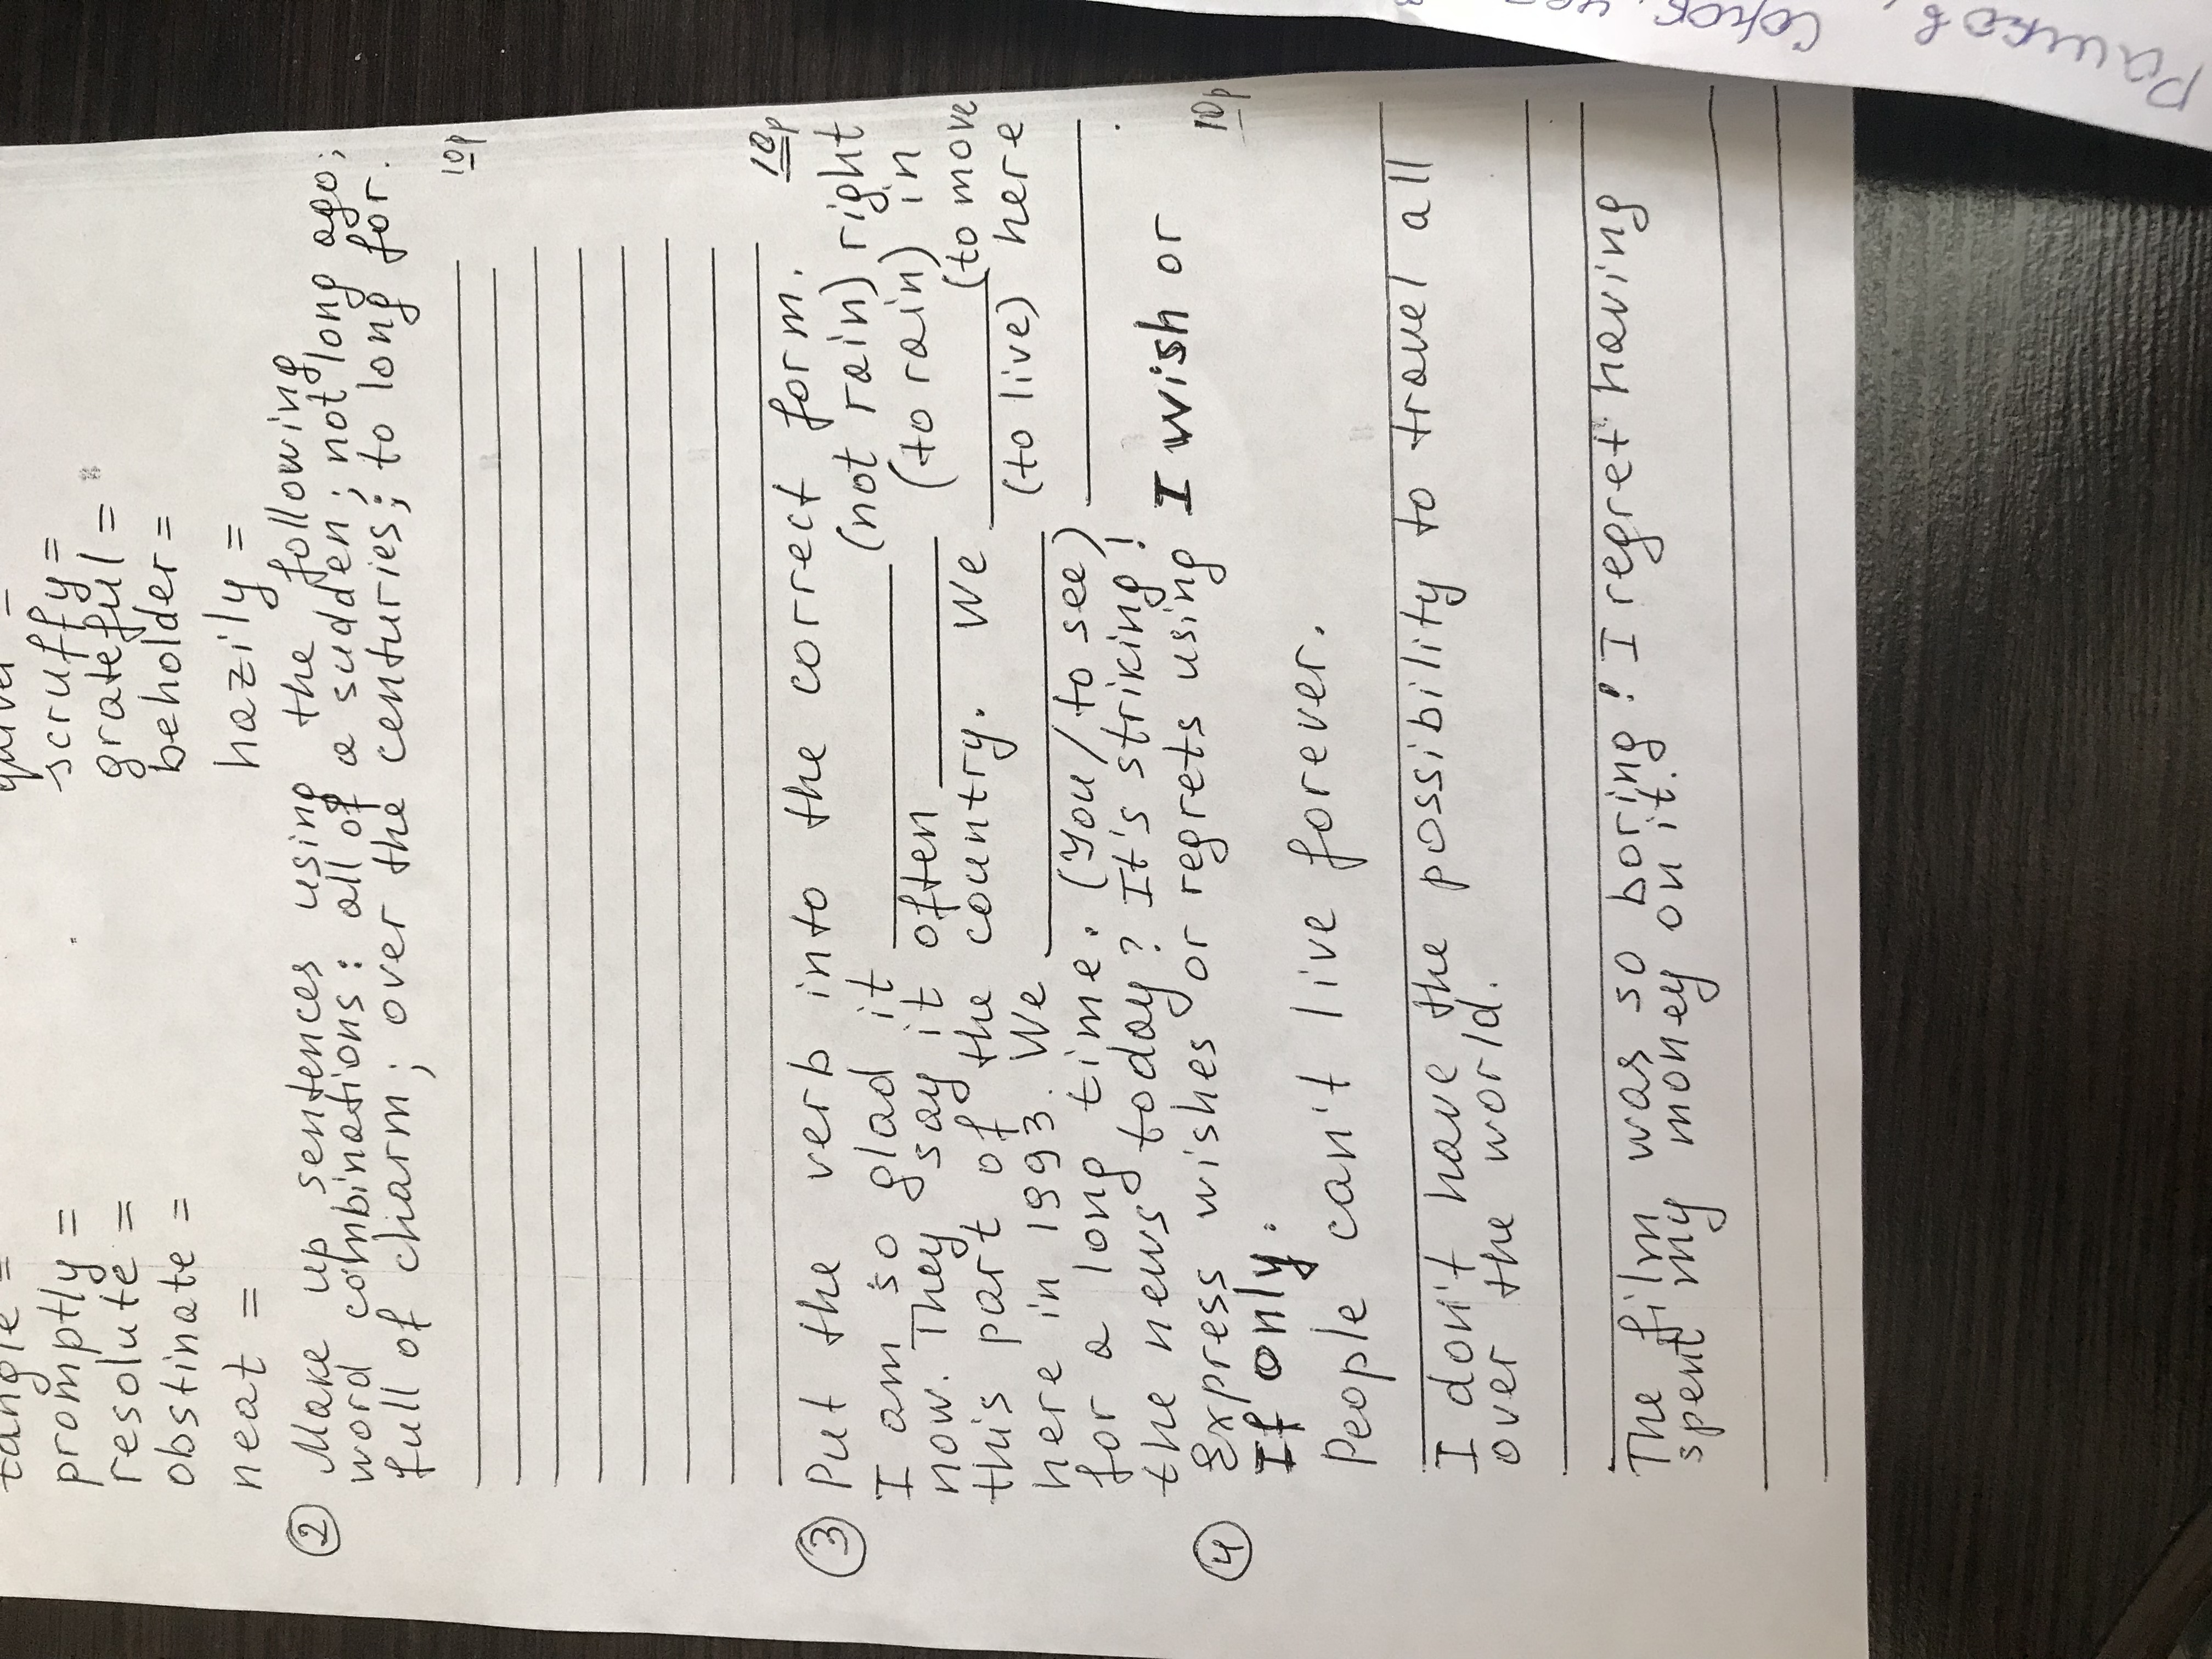 promptly =
resolute =
obstinate =
neat =
scruffy =
grateful =
beholder =
hazily =
② Make up sentences using the following
word combinations: all of a sudden; not long ago;
full of charm; over the centuries; to long for.
10p
③ Put the verb into the correct form. 10p
I am so glad it (not rain) right
now. They say it often (to rain) in
this part of the country. We (to move
here in 1993. We (to live) here
for a long time. (You/to see)
the news today? It's striking!
④ Express wishes or regrets using I wish or
If only. 10p
People can't live forever.
I don't have the possibility to travel all
over the world.
The film was so boring! I regret having
spent my money on it.